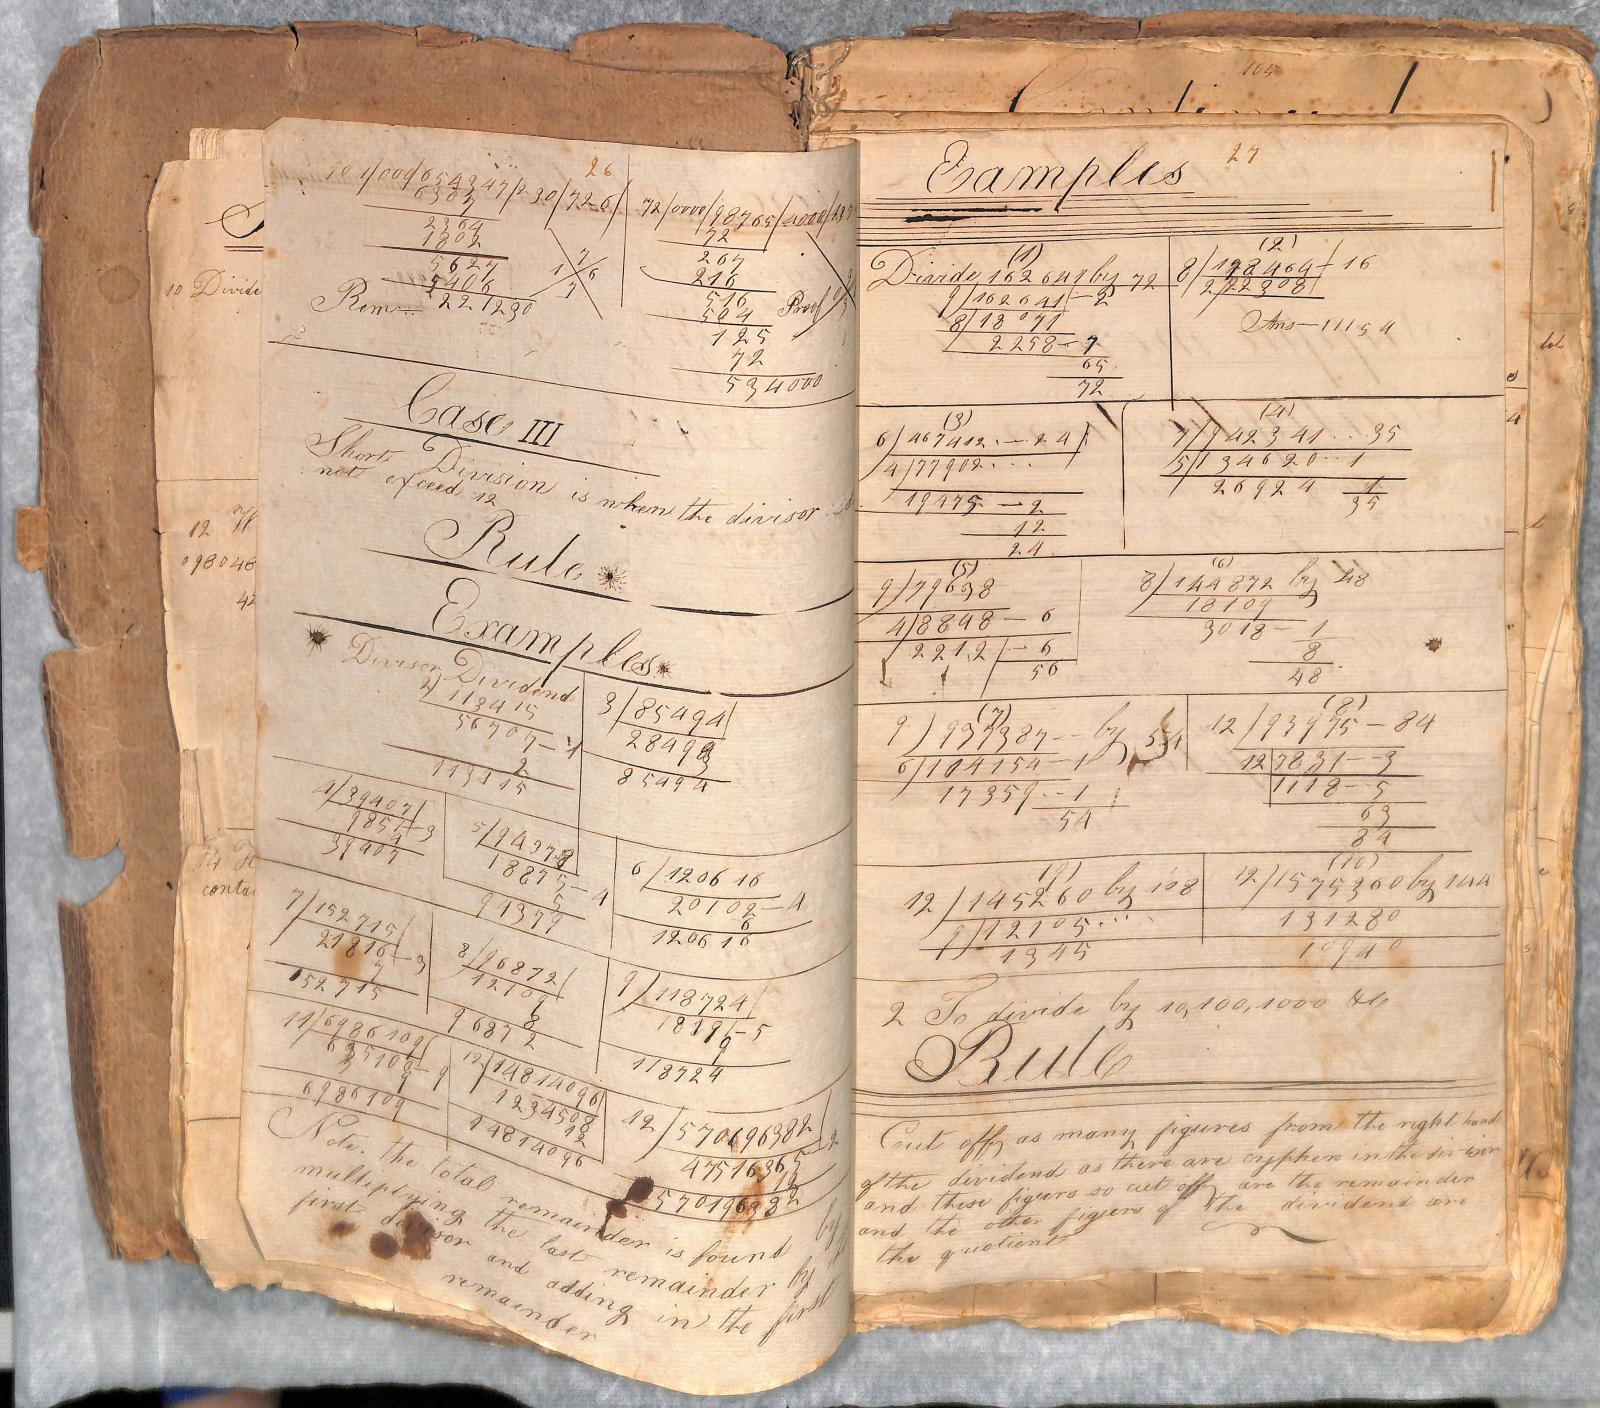 26
Rem
221230
72
267
216
516
504
125
72
534000
Proof
Case III
Short Division is when the divisor
not exceed 12
Rule
Examples
Divisor Dividend
2/113415
56707-1
2
113415
3/85494
28498
3
85494
4/39407
9851-3
4
39407
5/94379
18875-4
5
94379
6/120616
20102-4
6
120616
7/152715
21816-3
7
152715
8/96872
12109
8
96872
9/118724
9
118724
11/6986109
635100-9
6986109
12/14814096
1234508
12
14814096
12/570196382
47516365
12
570196382
Note. the total remainder is found by
multiplying the last remainder by
first divisor and adding in the first
remainder
105
Continued
27
Examples
(1)
Divide 162641 by 72
9/162641-2
8/18071
2258-7
65
72
(2)
8/178464-16
2/22308
Ans-11154
(3)
6/467412.-24
4/77902...
19475-2
12
24
(4)
7/942341..35
5/134620..1
26924 1
35
(5)
9/79638
4/8848-6
2212-6
56
(6)
8/144872 by 48
18109
3018-1
8
48
(7)
9/937387-- by 54
6/104154-1
17359--1
54
(8)
12/93975-84
12/7831-3
1118-5
63
84
(9)
12/145260 by 108
9/12105...
1345
(10)
12/1575360 by 144
131280
10940
2 To divide by 10,100,1000 &c
Rule
Cut off as many figures from the right hand
of the dividend as there are cyphers in the divisor
and these figurs so cut off are the remainder
and the other figures of the dividend are
the quotient
10 Divide
12
098048
42
conta